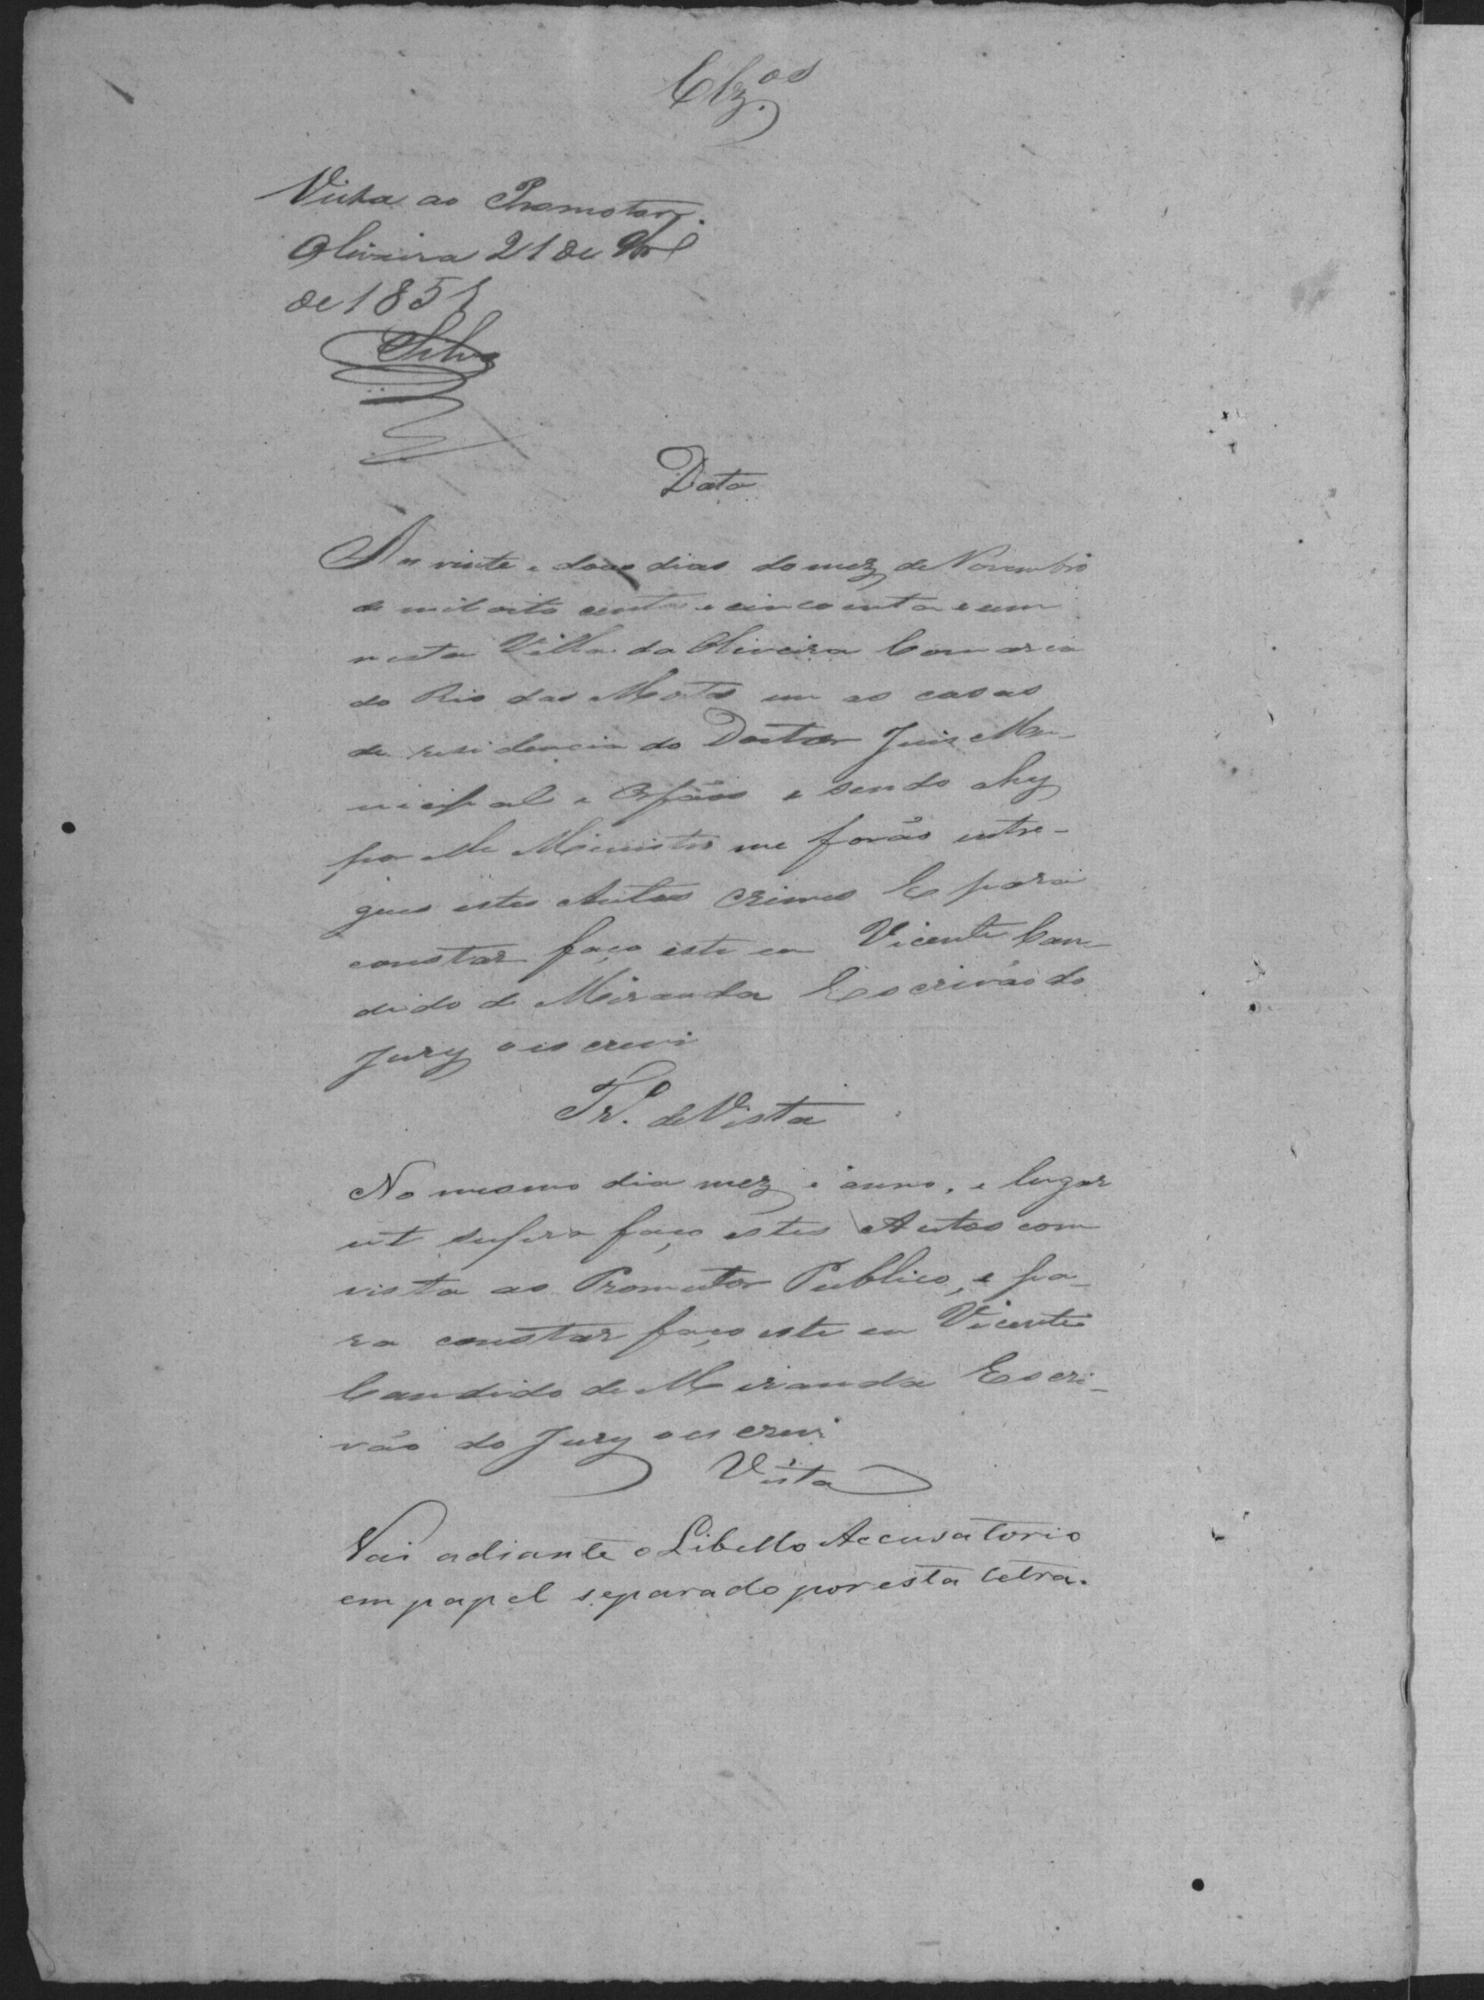 Clz.os
Vista ao Promotor.
Oliveira 21 de 9br.e
de 1851
Silva
Data
Aos vinte e dous dias do mez de Novembro
de mil oito centos e cincoenta e um
nesta Villa da Oliveira Comarca
do Rio das Mortes em as casas
de residencia do Doutor Juis Mu-
nicipal e Orfãos e sendo ahy
por elle Ministro me forão entre-
gues estes Autos crimes E para
constar faço este eu Vicente Can-
dido de Miranda Escrivão do
Jury o escrevi
Tr.o de Vista
No mesmo dia mez e anno, e lugar
ut supra faço estes Autos com
vista ao Promutor Publico, e pa-
ra constar faço este eu Vicente
Candido de Miranda Escri-
vão do Jury o escrevi
Vista
Vai adiante o Libello Accusatorio
em papel separado por esta letra.